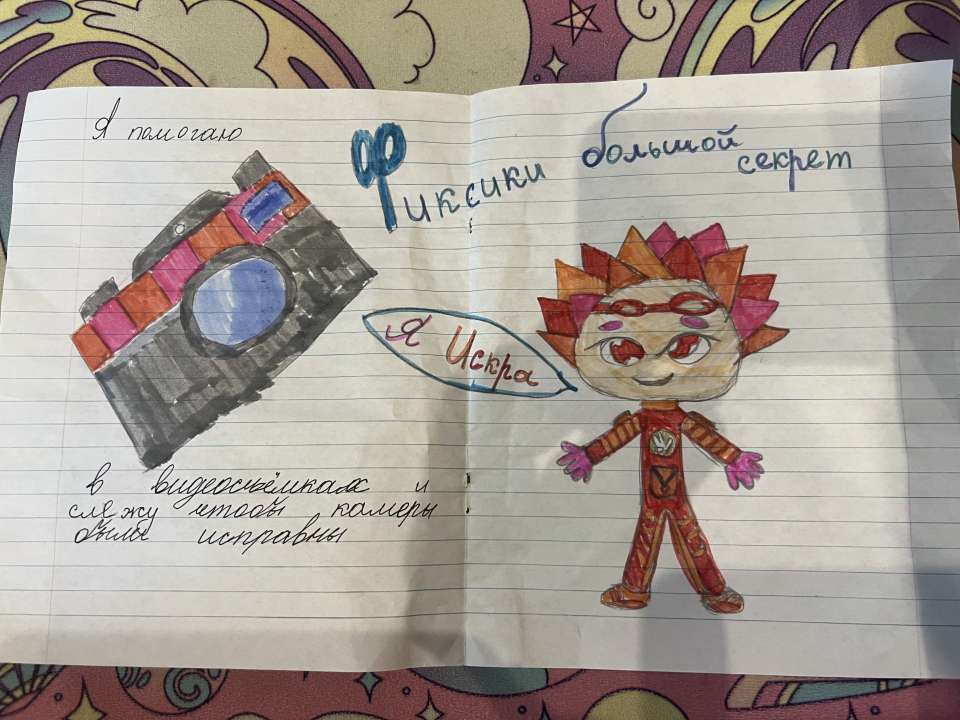 Я помогаю
Фиксики большой секрет
Я Искра
в видеосъёмках и
слежу чтобы камеры
были исправны